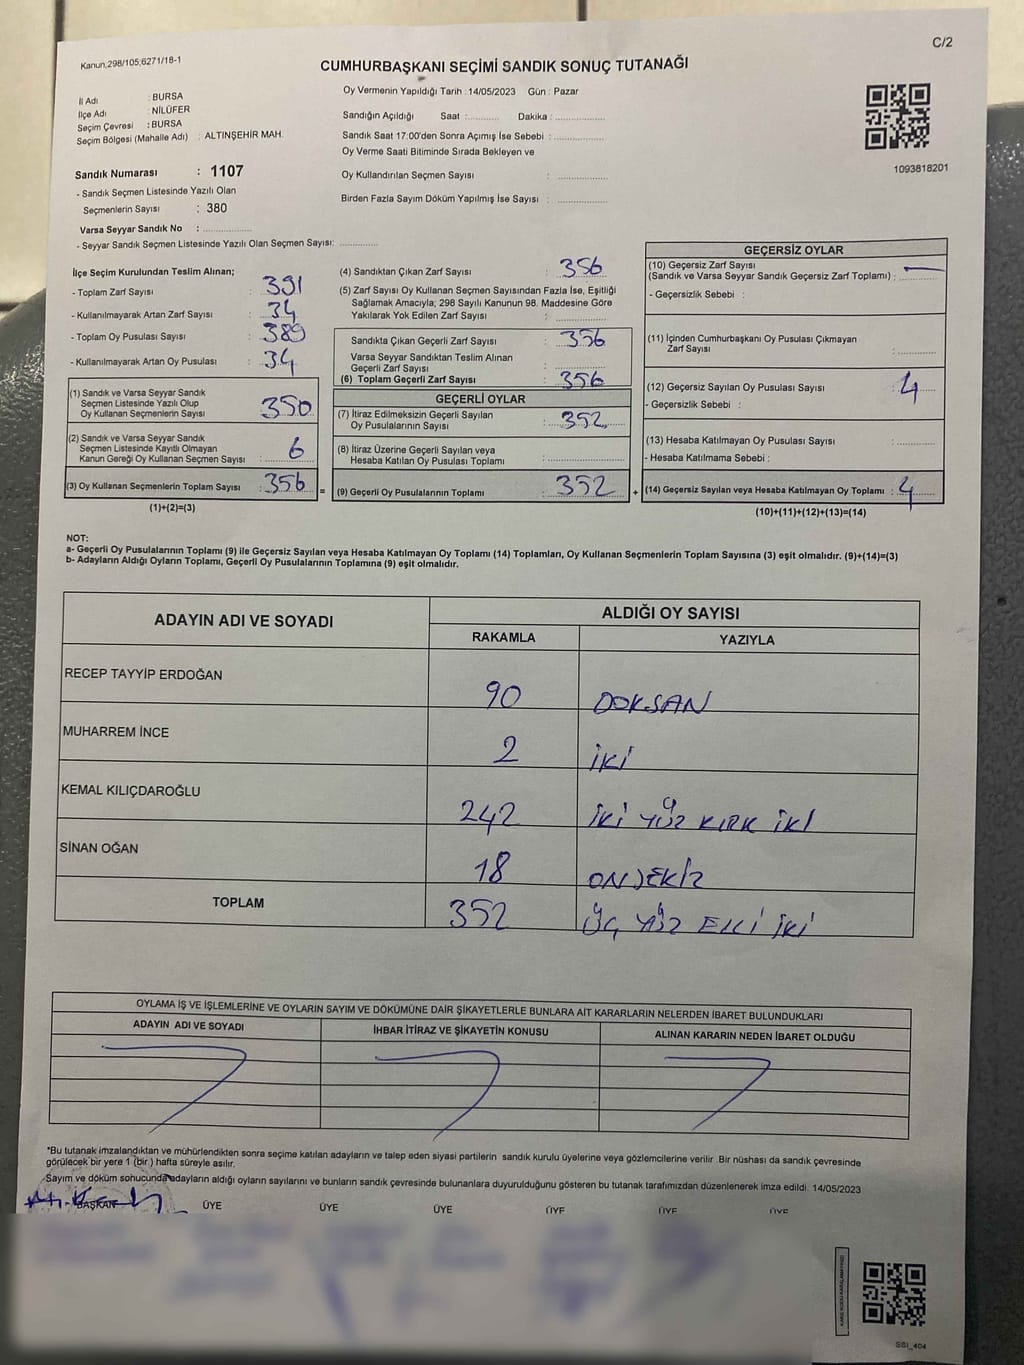 Kanun,298/105;6271/18-1
C/2
CUMHURBAŞKANI SEÇİMİ SANDIK SONUÇ TUTANAĞI
İl Adı : BURSA
İlçe Adı : NİLÜFER
Seçim Çevresi : BURSA
Seçim Bölgesi (Mahalle Adı) : ALTINŞEHİR MAH.
Sandık Numarası : 1107
- Sandık Seçmen Listesinde Yazılı Olan
Seçmenlerin Sayısı : 380
Varsa Seyyar Sandık No :
- Seyyar Sandık Seçmen Listesinde Yazılı Olan Seçmen Sayısı:
Oy Vermenin Yapıldığı Tarih :14/05/2023 Gün : Pazar
Sandığın Açıldığı Saat : Dakika :
Sandık Saat 17:00'den Sonra Açımış İse Sebebi :
Oy Verme Saati Bitiminde Sırada Bekleyen ve
Oy Kullandırılan Seçmen Sayısı :
Birden Fazla Sayım Döküm Yapılmış İse Sayısı :
1093818201
İlçe Seçim Kurulundan Teslim Alınan;
- Toplam Zarf Sayısı : 391
- Kullanılmayarak Artan Zarf Sayısı : 34
- Toplam Oy Pusulası Sayısı : 389
- Kullanılmayarak Artan Oy Pusulası : 34
(1) Sandık ve Varsa Seyyar Sandık
Seçmen Listesinde Yazılı Olup
Oy Kullanan Seçmenlerin Sayısı : 350
(2) Sandık ve Varsa Seyyar Sandık
Seçmen Listesinde Kayıtlı Olmayan
Kanun Gereği Oy Kullanan Seçmen Sayısı : 6
(3) Oy Kullanan Seçmenlerin Toplam Sayısı : 356
(1)+(2)=(3)
(4) Sandıktan Çıkan Zarf Sayısı : 356
(5) Zarf Sayısı Oy Kullanan Seçmen Sayısından Fazla İse, Eşitliği
Sağlamak Amacıyla; 298 Sayılı Kanunun 98. Maddesine Göre
Yakılarak Yok Edilen Zarf Sayısı :
Sandıkta Çıkan Geçerli Zarf Sayısı : 356
Varsa Seyyar Sandıktan Teslim Alınan
Geçerli Zarf Sayısı :
(6) Toplam Geçerli Zarf Sayısı : 356
GEÇERLİ OYLAR
(7) İtiraz Edilmeksizin Geçerli Sayılan
Oy Pusulalarının Sayısı : 352
(8) İtiraz Üzerine Geçerli Sayılan veya
Hesaba Katılan Oy Pusulası Toplamı :
= (9) Geçerli Oy Pusulalarının Toplamı : 352
GEÇERSİZ OYLAR
(10) Geçersiz Zarf Sayısı
(Sandık ve Varsa Seyyar Sandık Geçersiz Zarf Toplamı) : —
- Geçersizlik Sebebi :
(11) İçinden Cumhurbaşkanı Oy Pusulası Çıkmayan
Zarf Sayısı :
(12) Geçersiz Sayılan Oy Pusulası Sayısı : 4
- Geçersizlik Sebebi :
(13) Hesaba Katılmayan Oy Pusulası Sayısı :
- Hesaba Katılmama Sebebi :
+ (14) Geçersiz Sayılan veya Hesaba Katılmayan Oy Toplamı : 4
(10)+(11)+(12)+(13)=(14)
NOT:
a- Geçerli Oy Pusulalarının Toplamı (9) ile Geçersiz Sayılan veya Hesaba Katılmayan Oy Toplamı (14) Toplamları, Oy Kullanan Seçmenlerin Toplam Sayısına (3) eşit olmalıdır. (9)+(14)=(3)
b- Adayların Aldığı Oyların Toplamı, Geçerli Oy Pusulalarının Toplamına (9) eşit olmalıdır.
ADAYIN ADI VE SOYADI
ALDIĞI OY SAYISI
RAKAMLA YAZIYLA
RECEP TAYYİP ERDOĞAN 90 DOKSAN
MUHARREM İNCE 2 İKİ
KEMAL KILIÇDAROĞLU 242 İKİ YÜZ KIRK İKİ
SİNAN OĞAN 18 ONSEKİZ
TOPLAM 352 ÜÇ YÜZ ELLİ İKİ
OYLAMA İŞ VE İŞLEMLERİNE VE OYLARIN SAYIM VE DÖKÜMÜNE DAİR ŞİKAYETLERLE BUNLARA AİT KARARLARIN NELERDEN İBARET BULUNDUKLARI
ADAYIN ADI VE SOYADI İHBAR İTİRAZ VE ŞİKAYETİN KONUSU ALINAN KARARIN NEDEN İBARET OLDUĞU
*Bu tutanak imzalandıktan ve mühürlendikten sonra seçime katılan adayların ve talep eden siyasi partilerin sandık kurulu üyelerine veya gözlemcilerine verilir .Bir nüshası da sandık çevresinde
görülecek bir yere 1 (bir ) hafta süreyle asılır.
Sayım ve döküm sohucunda adayların aldığı oyların sayılarını ve bunların sandık çevresinde bulunanlara duyurulduğunu gösteren bu tutanak tarafımızdan düzenlenerek imza edildi. 14/05/2023
BAŞKAN ÜYE ÜYE ÜYE ÜYE ÜYE ÜYE
SSI_404